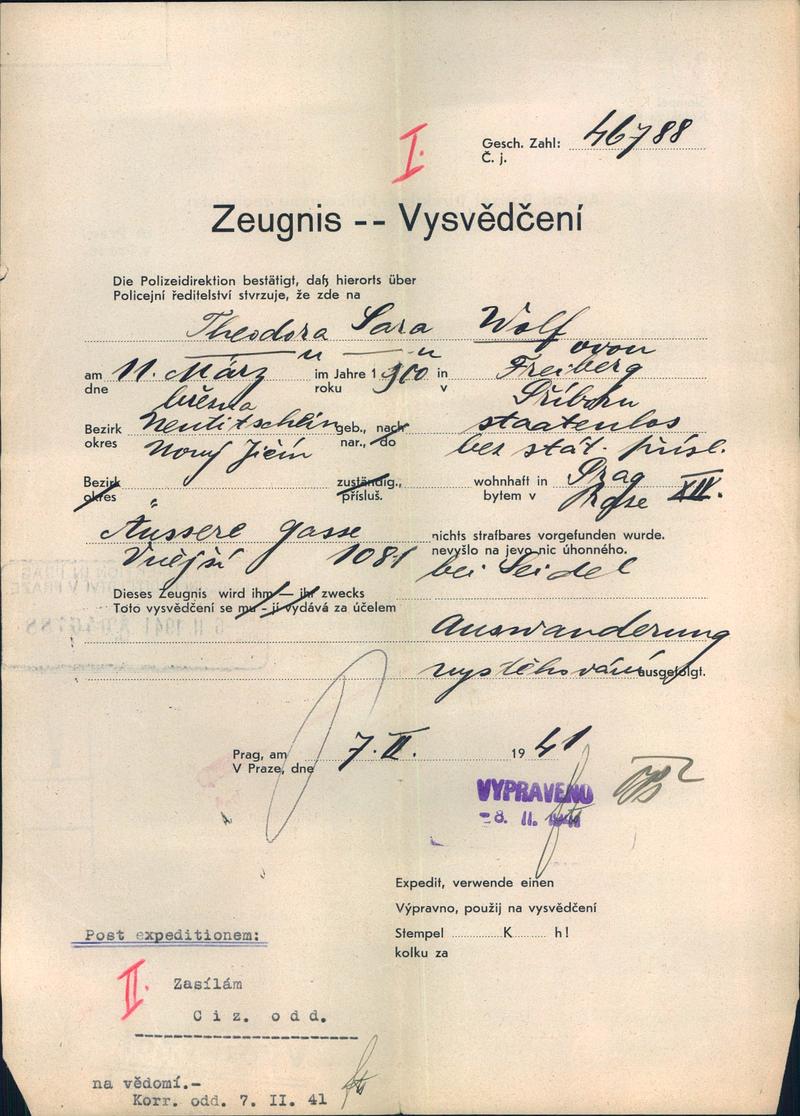 I.
Gesch. Zahl: 46788
Č. j.
Zeugnis -- Vysvědčení
Die Polizeidirektion bestätigt, daß hierorts über
Policejní ředitelství stvrzuje, že zde na
Theodora Sara Wolf
am 11. März im Jahre 1910 in Freiberg
dne března roku v Příboru
Bezirk Neutitschein geb., nach staatenlos
okres Nový Jičín nar., do bez stát. přísl.
Bezirk zuständig., wohnhaft in Prag XIV.
okres přísluš. bytem v Praze
Äussere gasse nichts strafbares vorgefunden wurde.
Vnější 1081 nevyšlo na jevo nic úhonného.
bei Seidel
Dieses Zeugnis wird ihm — ihr zwecks
Toto vysvědčení se mu - jí vydává za účelem
Auswanderung
vystěhování ausgefolgt.
Prag, am 7. II. 19 41
V Praze, dne
VYPRAVENO
8. II. 1941
Expedit, verwende einen
Výpravno, použij na vysvědčení
Stempel K h!
kolku za
Post expeditionem:
II. Zasílám
Ciz. odd.
na vědomí.-
Korr. odd. 7. II. 41